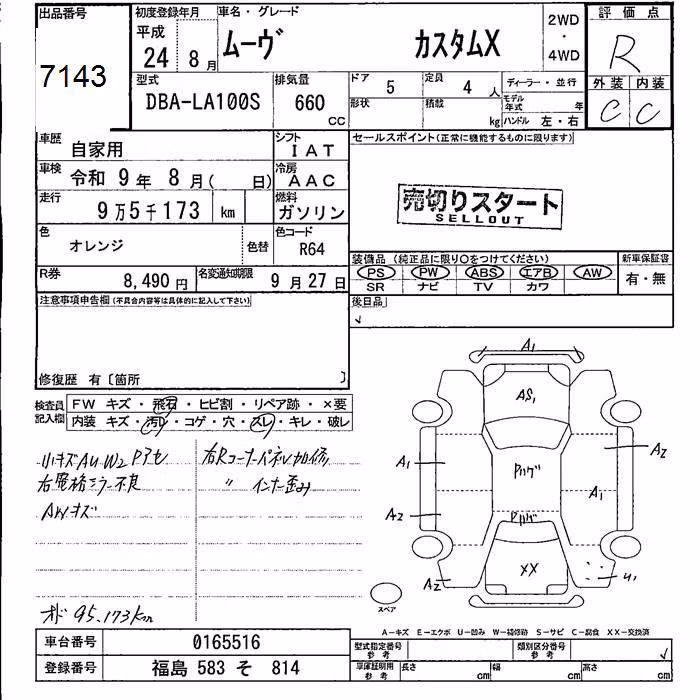 出品番号
7143
初度登録年月
平成
24 8月
車名・グレード
ムーヴ カスタムX
2WD
・
4WD
評価点
R
外装 内装
C C
型式
DBA-LA100S
排気量
660 CC
ドア 5
定員 4 人
形状
積載 kg
ディーラー・並行
モデル年式 年
ハンドル 左・右
車歴 自家用
シフト IAT
車検 令和 9年 8月( 日)
冷房 AAC
走行 9万5千173 km
燃料 ガソリン
色 オレンジ 色替
色コード R64
R券 8,490円
名変通知期限 9月27日
セールスポイント(正常に機能するものに限ります)
売切りスタート
SELLOUT
装備品 (純正品に限り○をつけてください)
PS PW ABS エアB AW
SR ナビ TV カワ
新車保証書
有・無
後日品
注意事項申告欄(不具合内容等は具体的に記入して下さい)
修復歴 有〔箇所 〕
検査員記入欄
FW キズ・飛石・ヒビ割・リペア跡・×要
内装 キズ・汚レ・コゲ・穴・スレ・キレ・破レ
小キズAUW2
右電格ミラー不良
AWキズ
右Rコーナーパネル加修
〃 インナー歪み
オド 95,173km
A1
AS1
A1
A2
A2
A2
A1
U1
XX
スペア
A-キズ E-エクボ U-凹み W-補修跡 S-サビ C-腐食 XX-交換済
車台番号 0165516
登録番号 福島 583 そ 814
型式指定番号 参考
類別区分番号 参考
車庫証明用 参考
長さ cm
幅 cm
高さ cm